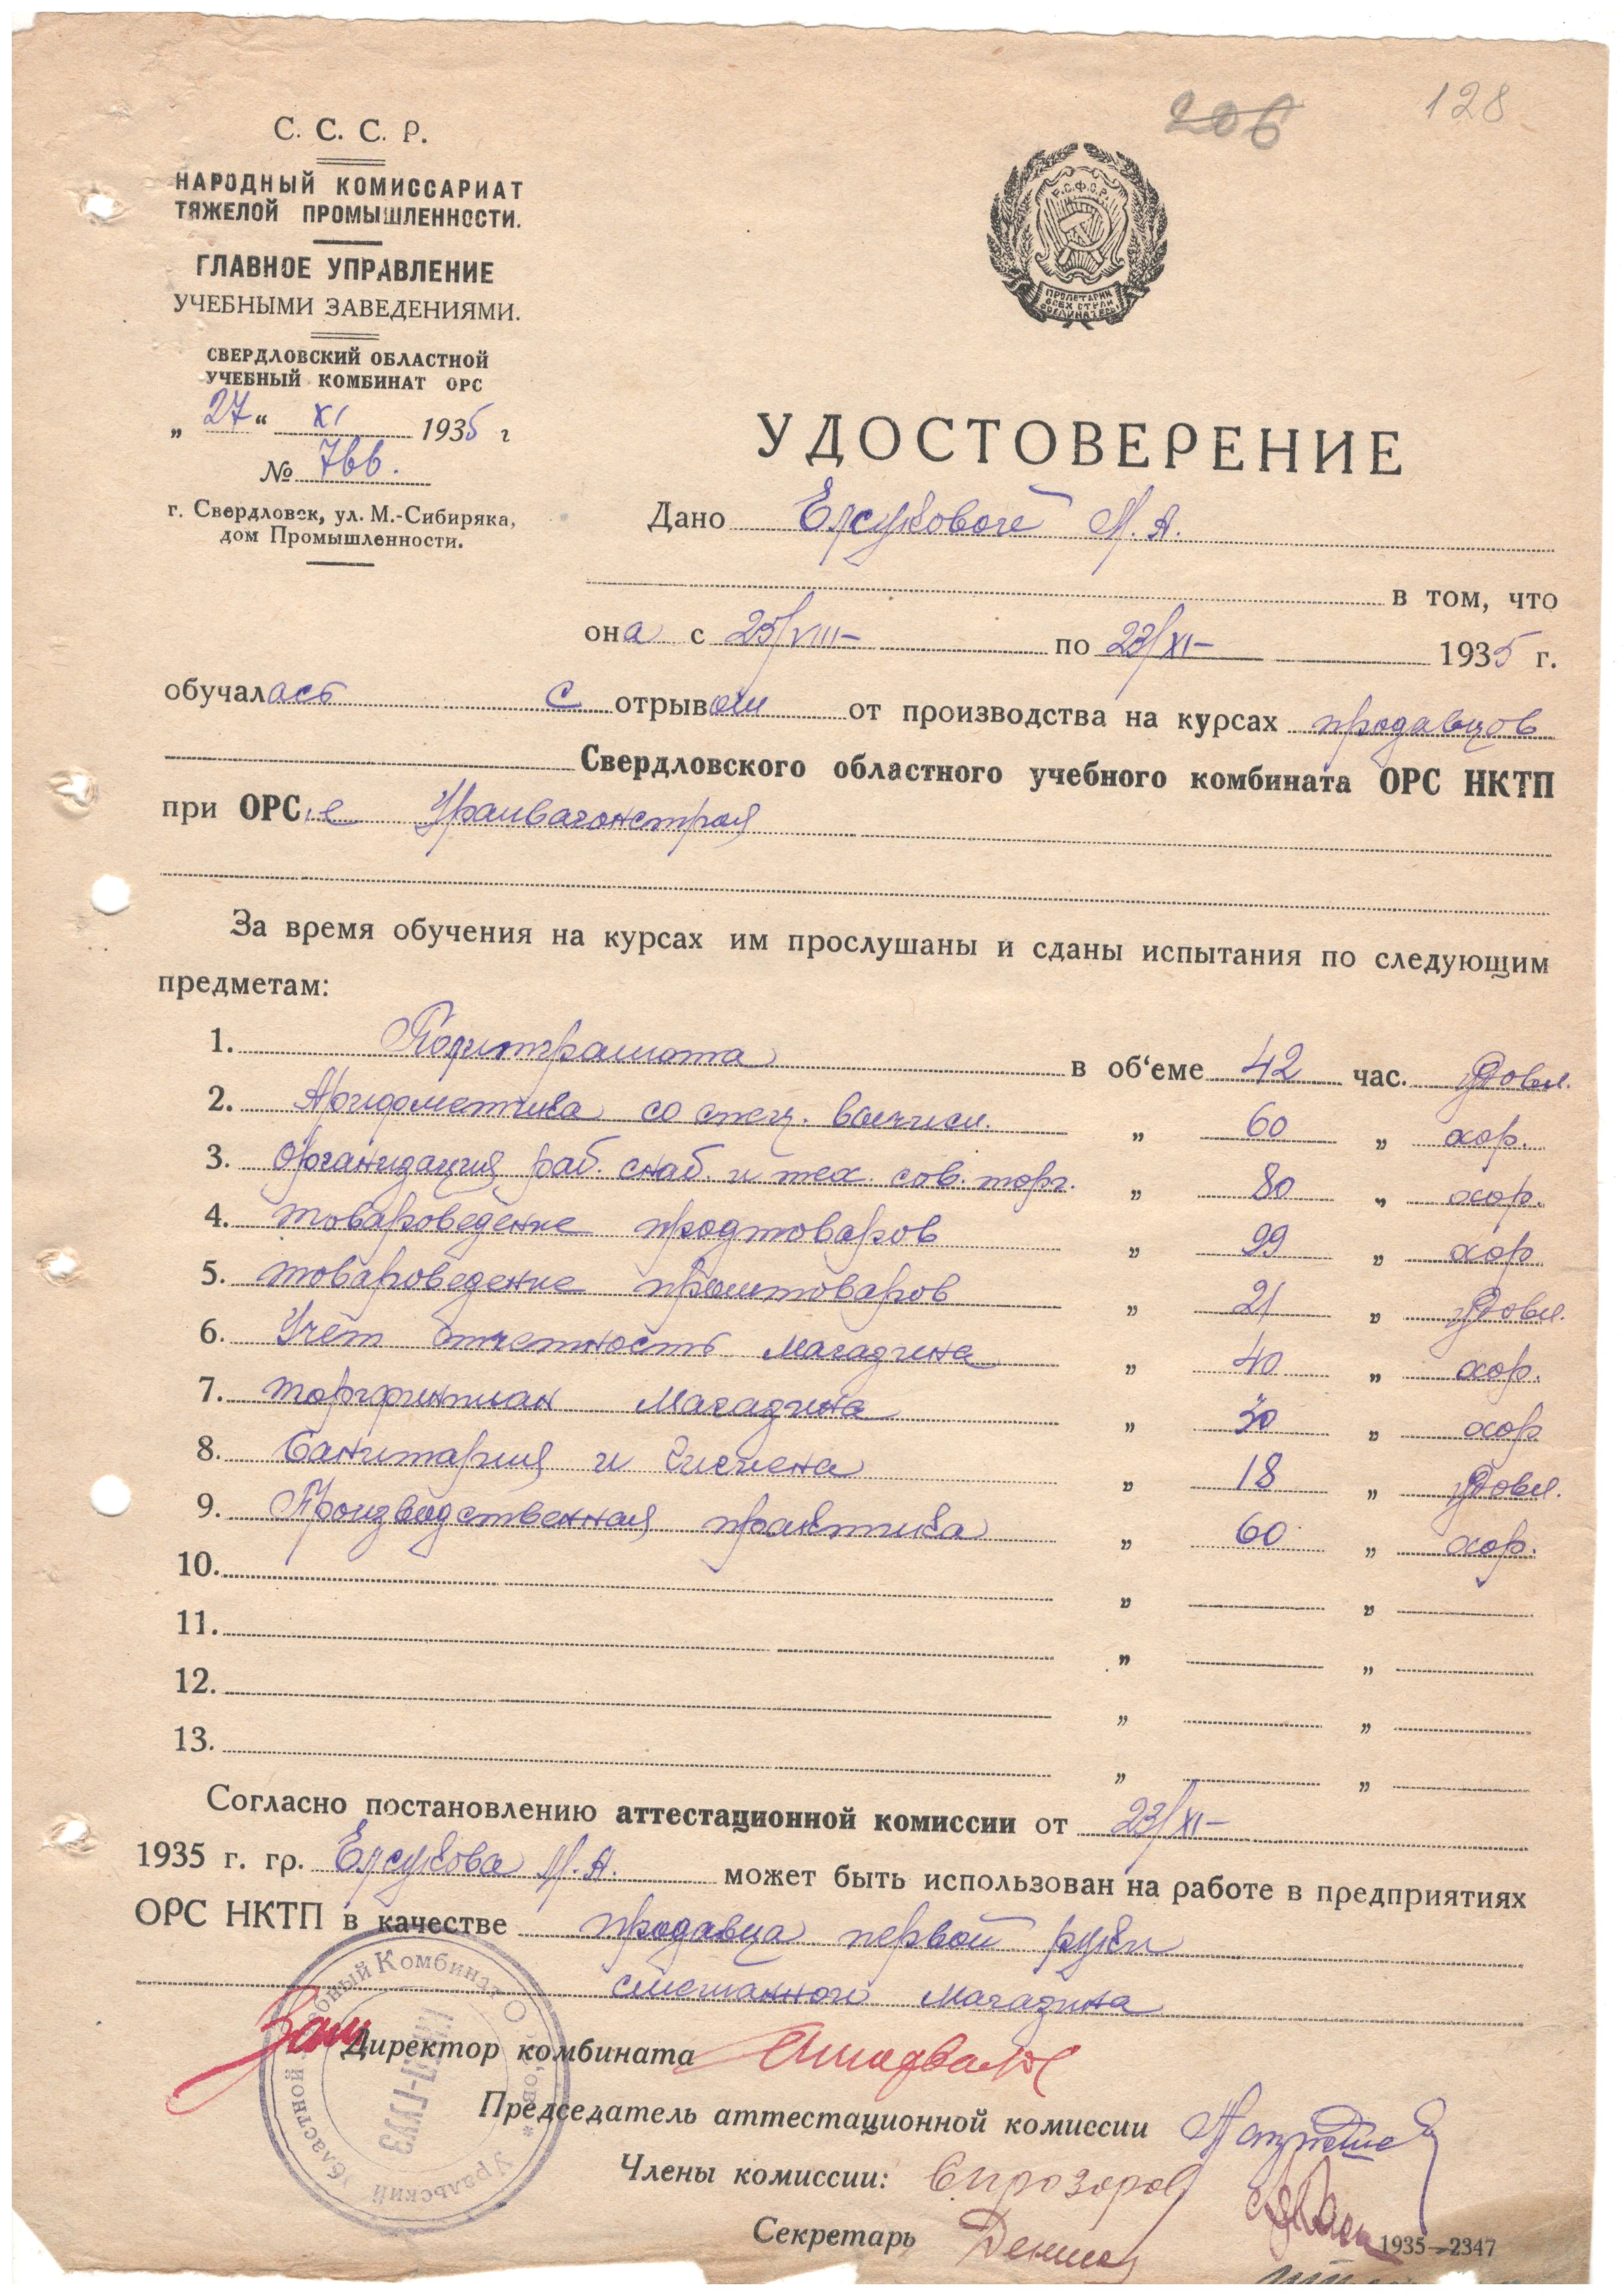 206 128
С. С. С. Р.
НАРОДНЫЙ КОМИССАРИАТ
ТЯЖЕЛОЙ ПРОМЫШЛЕННОСТИ.
ГЛАВНОЕ УПРАВЛЕНИЕ
УЧЕБНЫМИ ЗАВЕДЕНИЯМИ.
СВЕРДЛОВСКИЙ ОБЛАСТНОЙ
УЧЕБНЫЙ КОМБИНАТ ОРС
„ 27 “ XI 1935 г
№ 766.
г. Свердловск, ул. М.-Сибиряка,
дом Промышленности.
Р.С.Ф.С.Р.
ПРОЛЕТАРИИ
ВСЕХ СТРАН
СОЕДИНЯЙТЕСЬ
УДОСТОВЕРЕНИЕ
Дано Елсуковой М. А.
в том, что
она с 25/VIII– по 23/XI– 1935 г.
обучалась с отрывом от производства на курсах продавцов
Свердловского областного учебного комбината ОРС НКТП
при ОРСе Уралвагонстроя
За время обучения на курсах им прослушаны и сданы испытания по следующим
предметам:
1. Политграмота в об‘еме 42 час. Удовл.
2. Арифметика со спец. вычисл. „ 60 „ хор.
3. Организация раб. снаб. и тех. сов. торг. „ 80 „ хор.
4. Товароведение продтоваров „ 99 „ хор
5. Товароведение промтоваров „ 21 „ Удовл.
6. Учёт отчетность магазина „ 40 „ хор.
7. Торгфинплан магазина „ 30 „ хор
8. Санитария и гигиена „ 18 „ Удовл.
9. Производственная практика „ 60 „ хор.
10. „ „
11. „ „
12. „ „
13. „ „
Согласно постановлению аттестационной комиссии от 23/XI–
1935 г. гр. Елсукова М. А. может быть использован на работе в предприятиях
ОРС НКТП в качестве продавца первой руки
смешанного магазина
Зам Директор комбината
Председатель аттестационной комиссии
Члены комиссии:
Секретарь
1935—2347
Уральский Областной Учебный Комбинат